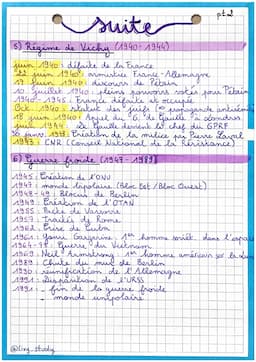 pt 2
suite
5) Régime de Vichy (1940-1944)
juin 1940 : défaite de la France
22 juin 1940 : armistice France-Allemagne
17 juin 1940 : discours de Pétain
10 juillet 1940 : pleins pouvoirs votés pour Pétain
1940-1945 : France défaite et occupée
Oct 1940 : statut des juifs + propagande antisémite
18 juin 1940 : Appel du G. de Gaulle à Londres
juin 1944 : De Gaulle devient le chef du GPRF
30 janv. 1943 : Création de la milice par Pierre Laval
1943 : CNR (Conseil National de la Résistance)
6) Guerre froide (1947-1989)
1945 : Création de l'ONU
1947 : monde bipolaire (Bloc Est / Bloc Ouest)
1948-49 : Blocus de Berlin
1949 : Création de l'OTAN
1955 : Pacte de Varsovie
1957 : Traités de Rome
1962 : Crise de Cuba
1961 : Youri Gagarine 1er homme soviét. dans l'espace
1964-75 : Guerre du Vietnam
1969 : Neil Armstrong : 1er homme américain sur la lune
1989 : Chute du mur de Berlin
1990 : réunification de l'Allemagne
1991 : Disparition de l'URSS
1991 : - fin de la guerre froide
- monde unipolaire